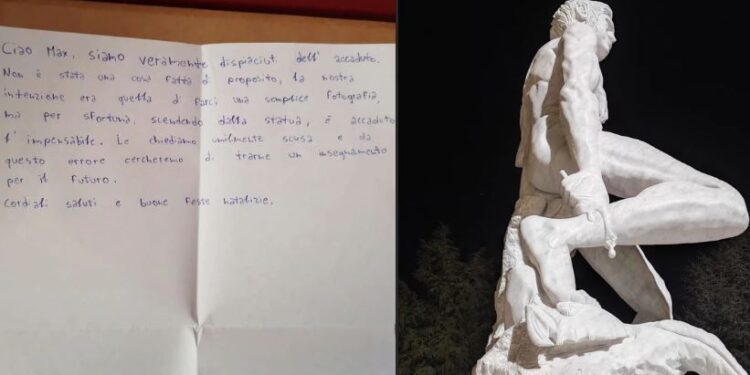 Ciao Max, siamo veramente dispiaciuti dell' accaduto.
Non è stata una cosa fatta di proposito, la nostra
intenzione era quella di farci una semplice fotografia,
ma per sfortuna, scendendo dalla statua, è accaduto
l'impensabile. Le chiediamo umilmente scusa e da
questo errore cercheremo di trarne un insegnamento
per il futuro.
Cordiali saluti e buone feste natalizie.